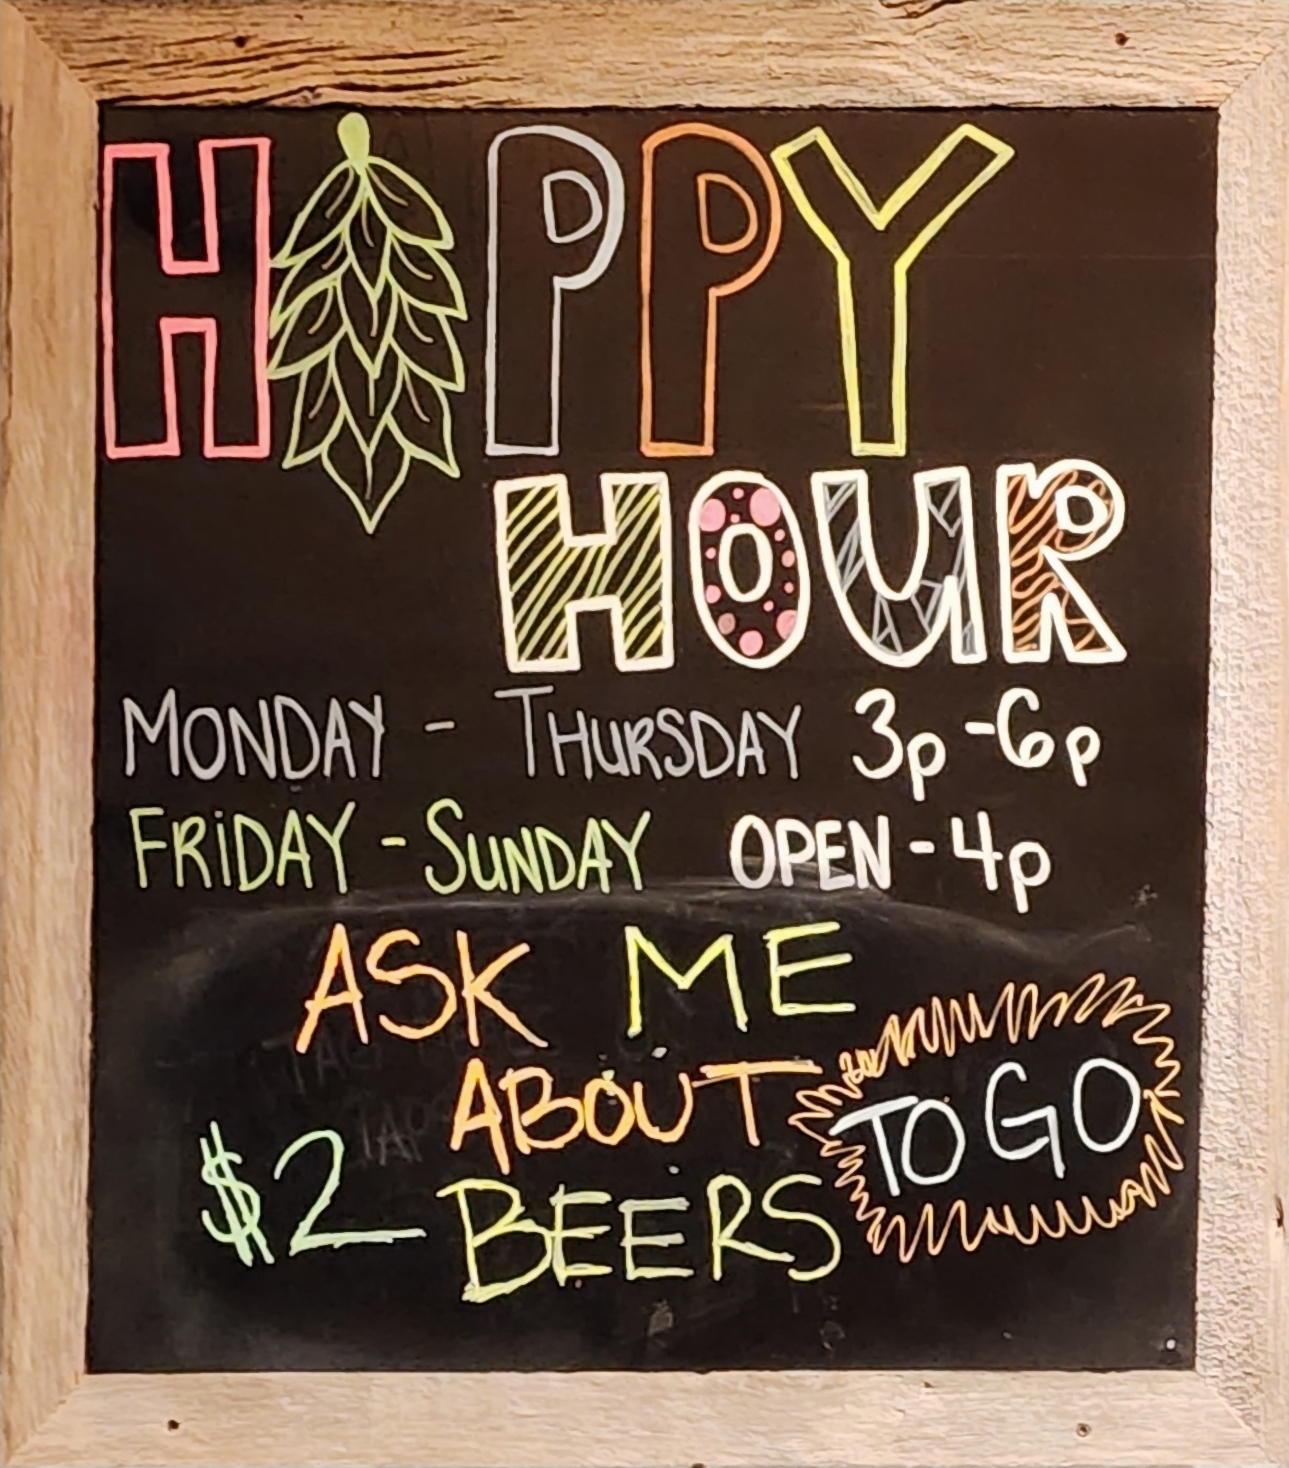 HAPPY
HOUR
MONDAY - THURSDAY 3p - 6p
FRIDAY - SUNDAY OPEN - 4p
ASK ME
ABOUT
$2 BEERS
TO GO